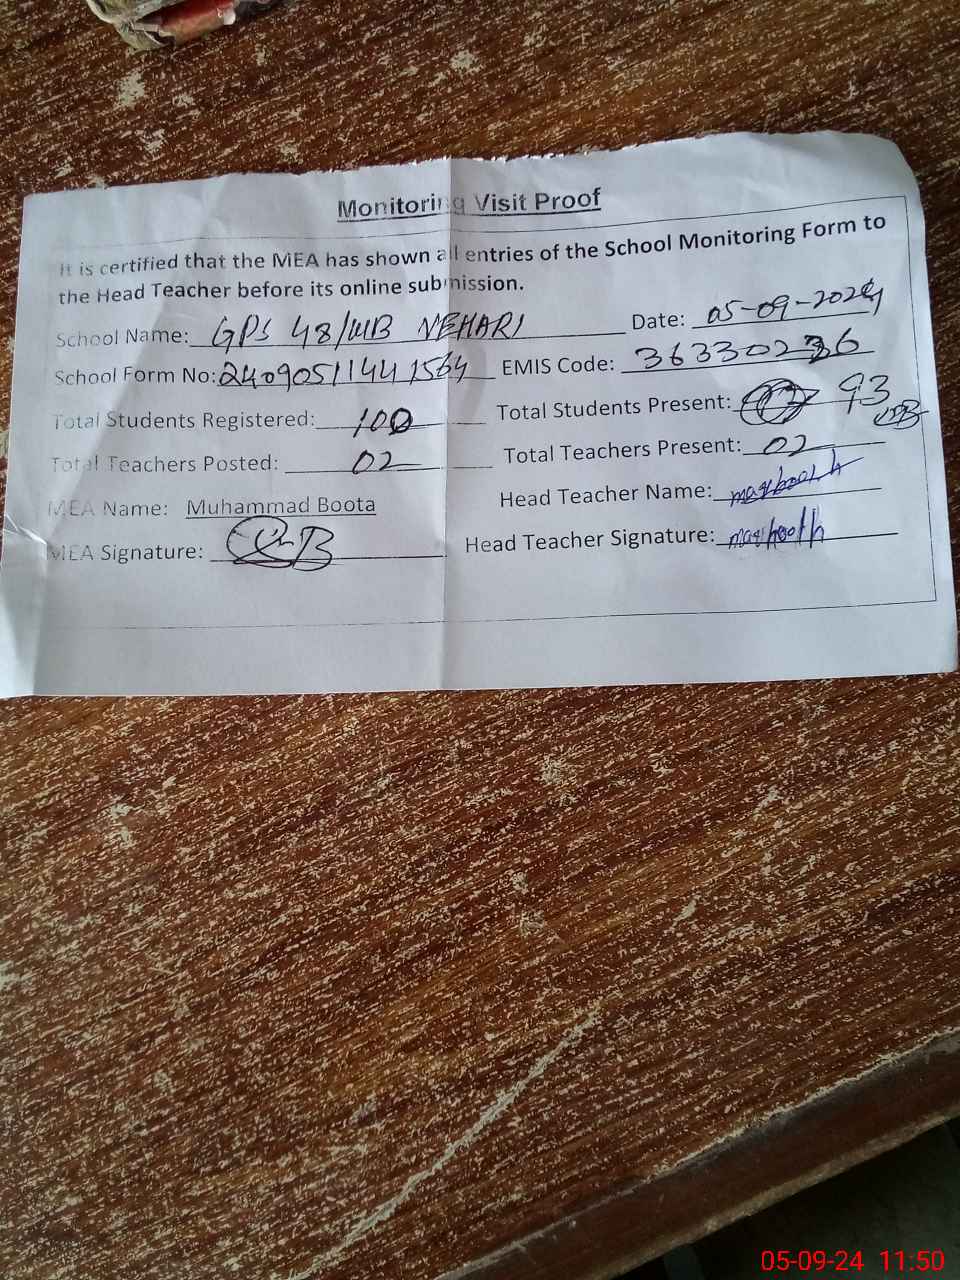 Monitoring Visit Proof
It is certified that the MEA has shown all entries of the School Monitoring Form to
the Head Teacher before its online submission.
School Name: GPS 48/WB VEHARI Date: 05-09-2024
School Form No: 24090511441564 EMIS Code: 36330236
Total Students Registered: 100 Total Students Present: 93
Total Teachers Posted: 02 Total Teachers Present: 02
MEA Name: Muhammad Boota Head Teacher Name:
MEA Signature: Head Teacher Signature:
05-09-24 11:50